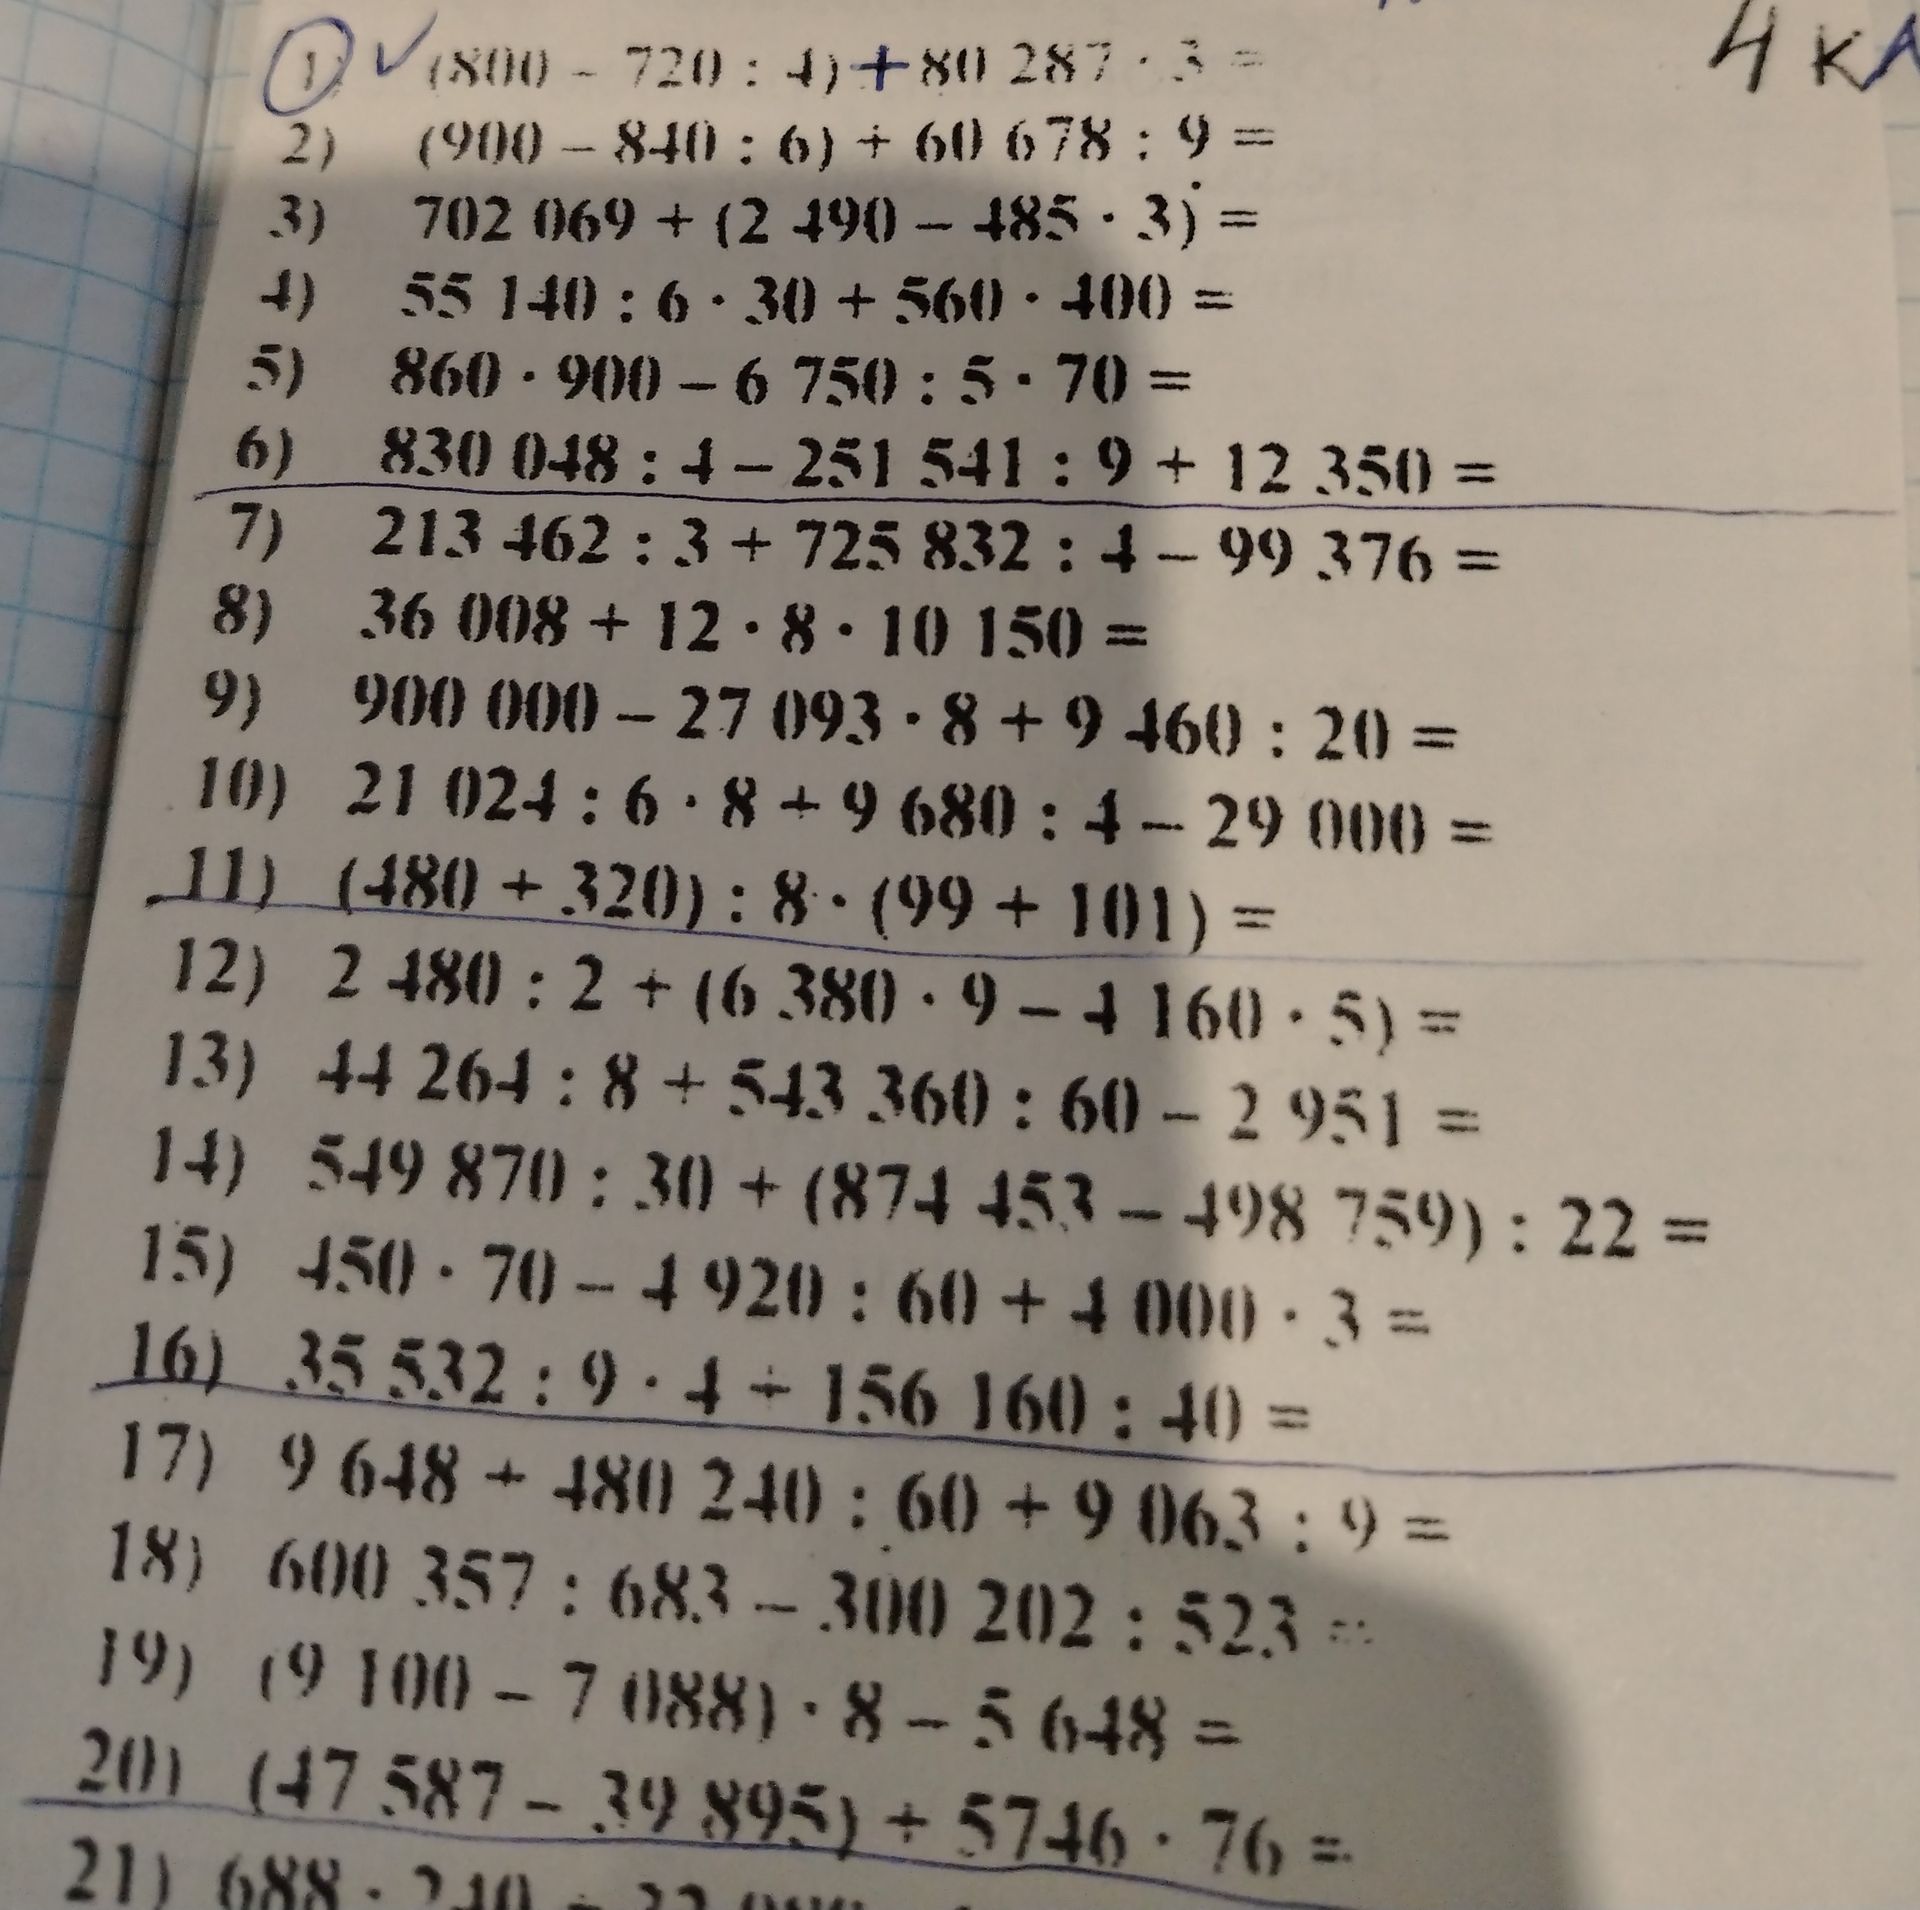 4 кл
1) (800 – 720 : 4) + 80 287 · 3 =
2) (900 – 840 : 6) + 60 678 : 9 =
3) 702 069 + (2 490 – 485 · 3) =
4) 55 140 : 6 · 30 + 560 · 400 =
5) 860 · 900 – 6 750 : 5 · 70 =
6) 830 048 : 4 – 251 541 : 9 + 12 350 =
7) 213 462 : 3 + 725 832 : 4 – 99 376 =
8) 36 008 + 12 · 8 · 10 150 =
9) 900 000 – 27 093 · 8 + 9 460 : 20 =
10) 21 024 : 6 · 8 + 9 680 : 4 – 29 000 =
11) (480 + 320) : 8 · (99 + 101) =
12) 2 480 : 2 + (6 380 · 9 – 4 160 · 5) =
13) 44 264 : 8 + 543 360 : 60 – 2 951 =
14) 549 870 : 30 + (874 453 – 498 759) : 22 =
15) 450 · 70 – 4 920 : 60 + 4 000 · 3 =
16) 35 532 : 9 · 4 + 156 160 : 40 =
17) 9 648 + 480 240 : 60 + 9 063 : 9 =
18) 600 357 : 683 – 300 202 : 523 =
19) (9 100 – 7 088) · 8 – 5 648 =
20) (47 587 – 39 895) + 5746 · 76 =
21) 688 · 240